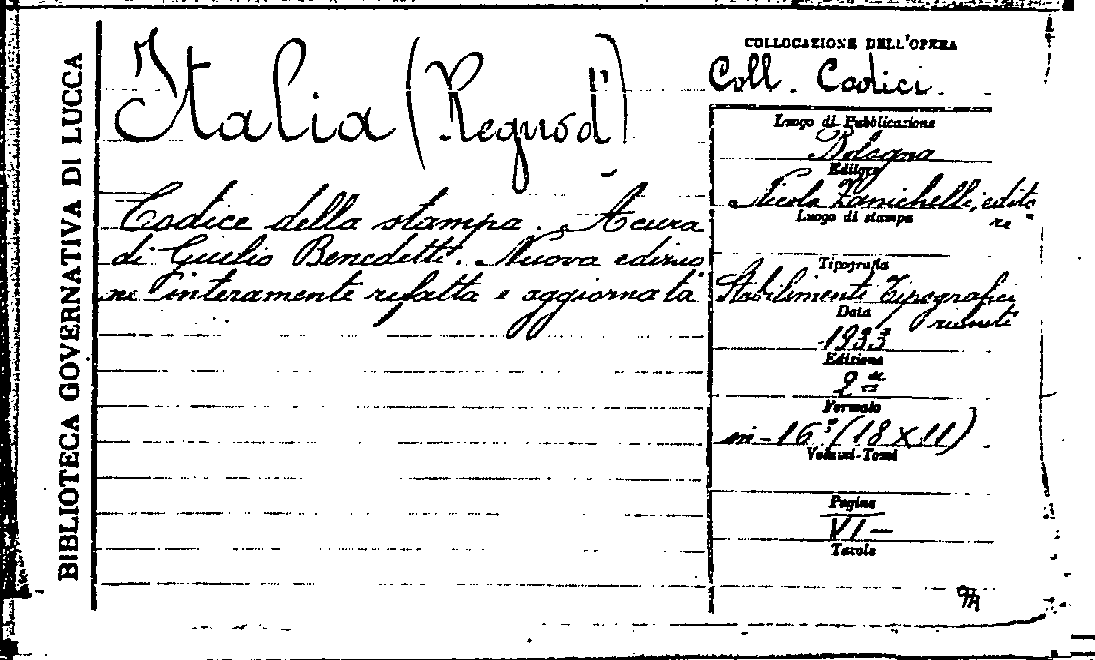 BIBLIOTECA GOVERNATIVA DI LUCCA
Italia (Regno d')
Codice della stampa. A cura
di Giulio Benedetti. Nuova edizio
ne interamente rifatta e aggiornata
COLLOCAZIONE DELL'OPERA
Coll. Codici.
Luogo di Pubblicazione
Bologna
Editore
Nicola Zanichelli, edito
re
Luogo di stampa
Tipografia
Stabilimenti Tipografici
riuniti
Data
1933
Edizione
2ª
Formato
in-16° (18x11)
Volumi-Tomi
Pagine
VI-
Tavole